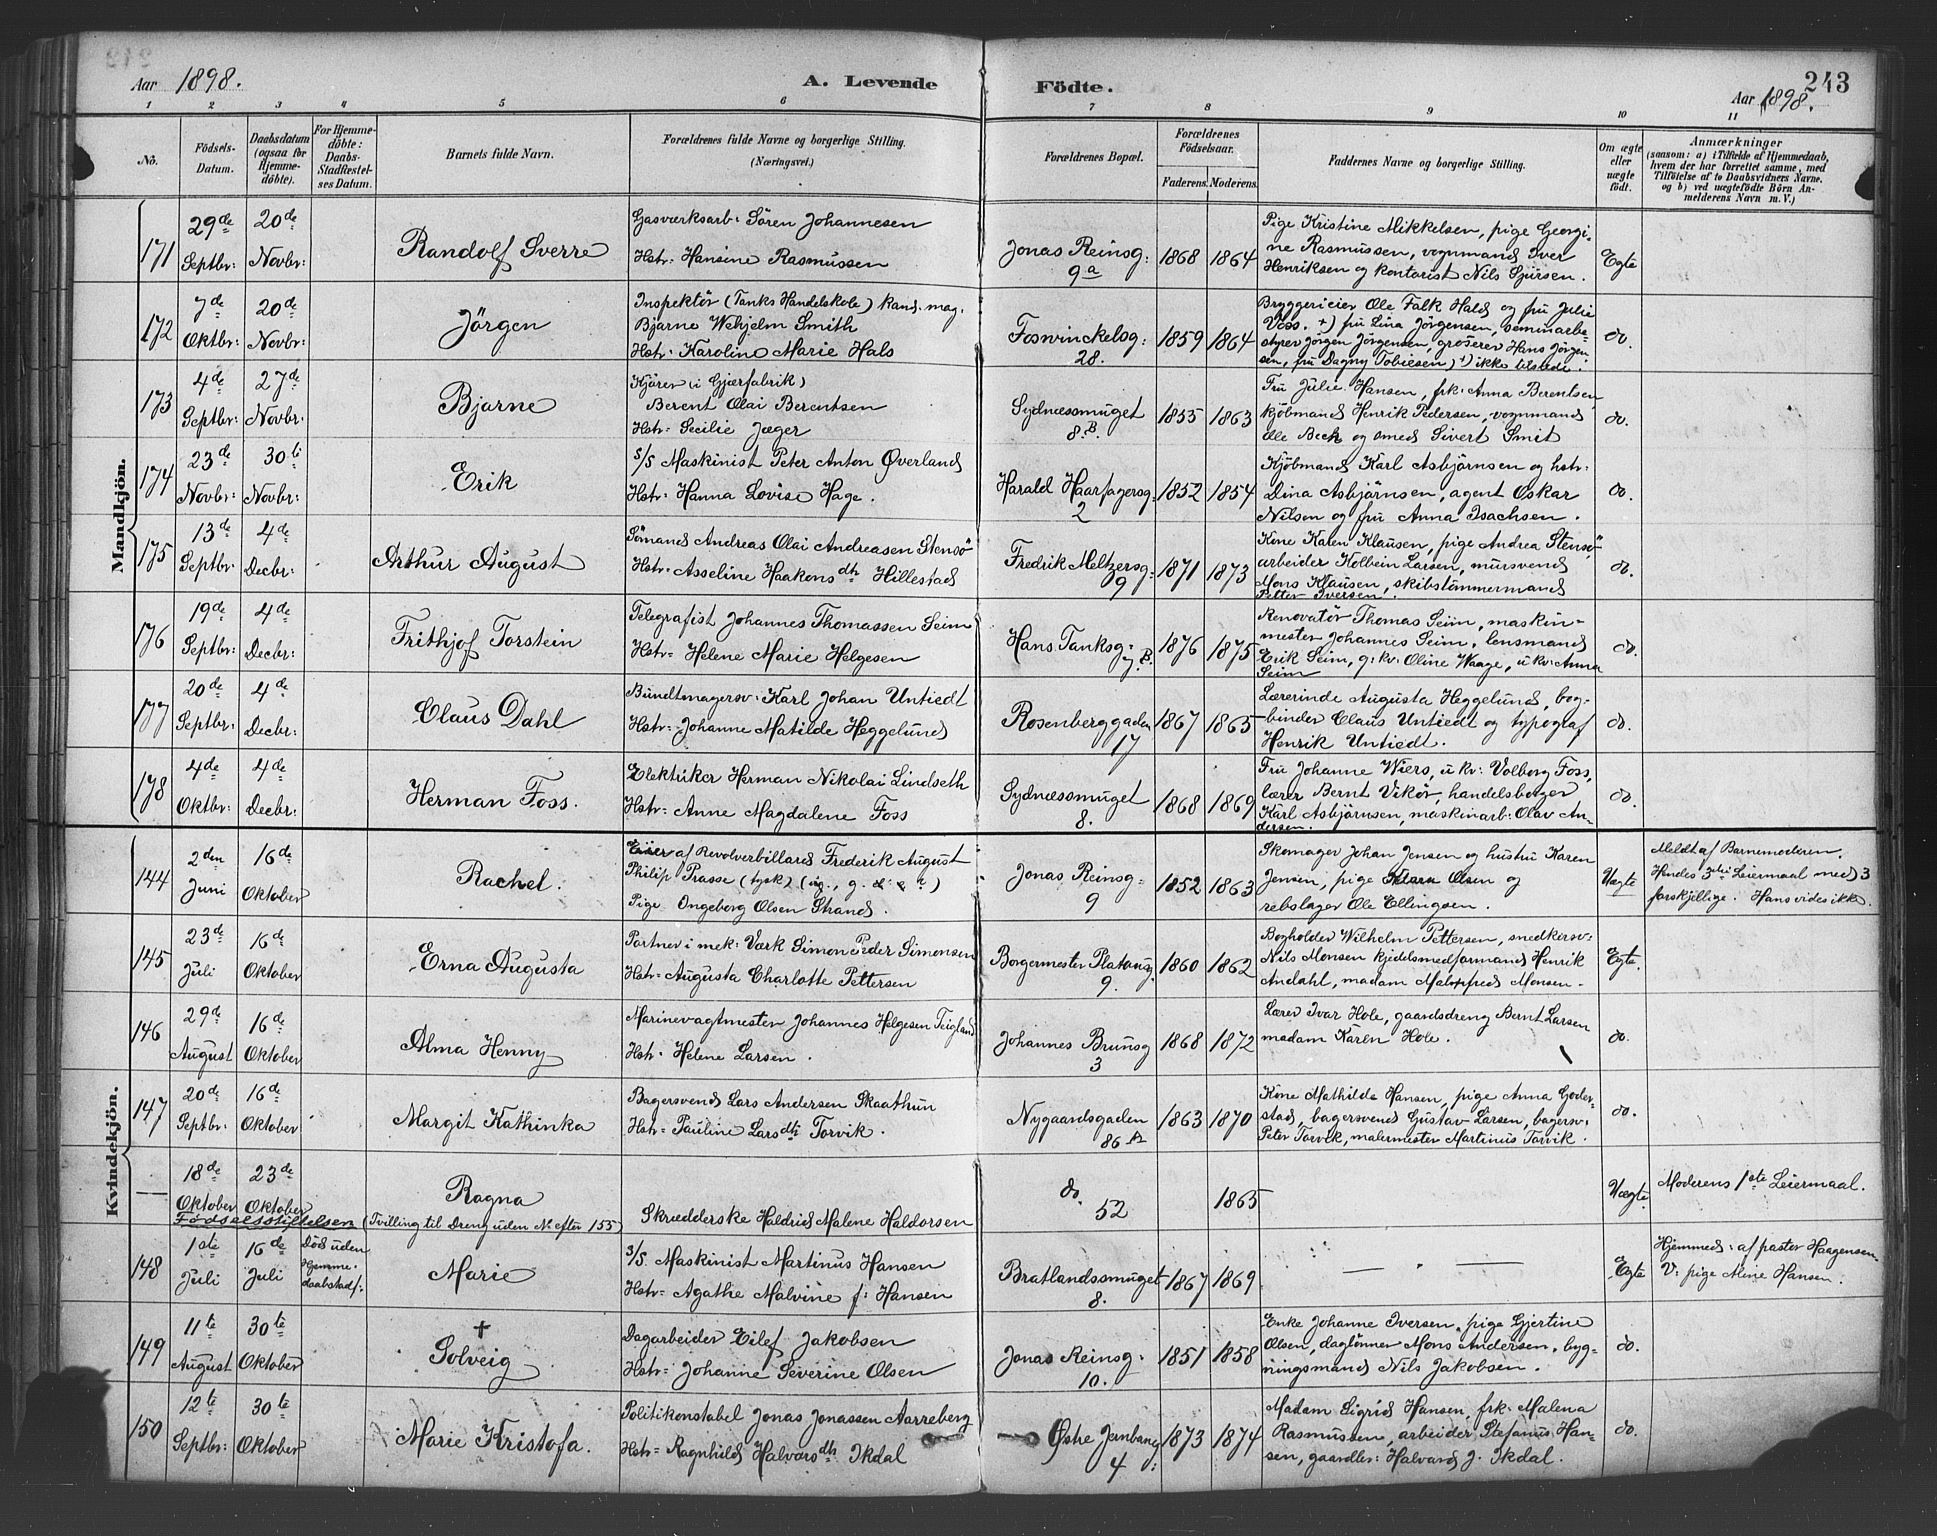 Aar 1898.
A. Levende
Födte.
243
Aar 1898.
1 2 3 4 5 6 7 8 9 10 11
No.
Födsels-
Datum.
Daabsdatum
(ogsaa for
Hjemme-
döbte).
For Hjemme-
döbte:
Daabs-
Stadfæstel-
ses Datum.
Barnets fulde Navn.
Forældrenes fulde Navne og borgerlige Stilling.
(Næringsvei.)
Forældrenes Bopæl.
Forældrenes
Födselsaar.
Faderens. Moderens.
Faddernes Navne og borgerlige Stilling.
Om ægte
eller
uægte
födt.
Anmærkninger
(saasom: a) i Tilfælde af Hjemmedaab,
hvem der har forrettet samme, med
Tilföielse af to Daabsvidners Navne,
og b) ved uægtefödte Börn An-
melderens Navn m. V.)
Mandkjön.
171
29de
Septbr:
20de
Novbr:
Randolf Sverre
Gasværksarb: Sören Johannesen
Hstr: Hansine Rasmussen
Jonas Reinsg:
9a
1868 1864
Pige Kristine Mikkelsen, pige Georgi-
ne Rasmussen, vognmand Iver
Henriksen og kontorist Nils Sjursen.
Egte
172
7de
Oktbr:
20de
Novbr:
Jörgen
Inspektör (Tanks Handelskole) kand. mag.
Bjarne Wehjelm Smith
Hstr: Karoline Marie Hals
Fosvinckelsg:
28.
1859 1864
Bryggerieier Ole Falk Hals og fru Julie
Voss. +) fru Lina Jörgensen, seminarbe-
styrer Jörgen Jörgensen, groserer Hans Jörgen-
sen, fru Dagny Tobiesen) +) ikke tilstede.
do.
173
4de
Septbr:
27de
Novbr:
Bjarne
Kjörer (i Gjærfabrik)
Berent Olai Berentsen
Hstr: Secilie Jæger
Sydnæssmuget
8.B.
1855 1863
Fru Julie Hansen, frk: Anna Berentsen
kjöbmand Henrik Pedersen, vognmand
Ole Beck og smed Sivert Smit
do.
174
23de
Novbr:
30te
Novbr:
Erik
S/S Maskinist Peter Anton Øverland
Hstr: Hanna Lovise Hage.
Harald Haarfagersg:
2
1852 1854
Kjöbmand Karl Asbjörnsen og hstr:
Dina Asbjörnsen, agent Oskar
Nilsen og fru Anna Isachsen.
do.
175
13de
Septbr:
4de
Decbr:
Arthur August
Sömand Andreas Olai Andreasen Stensö
Hstr: Asseline Haakonsdtr Hillestad
Fredrik Meltzersg:
9
1871 1873
Kone Karen Klausen, pige Andrea Stensö,
arbeider Kolbein Larsen, mursvend
Mons Klausen, skibstömmermand
Petter Iversen.
do.
176
19de
Septbr:
4de
Decbr:
Frithjof Torstein
Telegrafist Johannes Thomassen Seim
Hstr: Helene Marie Helgesen
Hans Tanksg:
7.B.
1876 1875
Renovatör Thomas Seim, maskin-
mester Johannes Seim, lensmand
Erik Seim, g: kv: Oline Waage, u kv: Anna
Seim
do.
177
20de
Septbr:
4de
Decbr:
Claus Dahl
Bundtmagersv: Karl Johan Untiedt
Hstr: Johanne Matilde Heggelund
Rosenberggaden
17
1867 1865
Lærerinde Augusta Heggelund, bog-
binder Claus Untiedt og typograf
Henrik Untiedt.
do.
178
4de
Oktbr:
4de
Decbr:
Herman Foss.
Elektriker Herman Nikolai Lindseth
Hstr: Anne Magdalene Foss
Sydnæssmuget
8.
1868 1869
Fru Johanne Wiers, u kv: Valborg Foss,
lærer Bernt Vikör, handelsborger
Karl Asbjörnsen, maskinarb: Olav An-
dersen.
do.
Kvindekjön.
144
2den
Juni
16de
Oktober
Rachel.
Eier af Revolverbillard Frederik August
Philip Prasse (tysk)
Pige Ingeborg Olsen Strand.
Jonas Reinsg:
9
1852 1863
Skomager Johan Jensen og hustru Karen
Jensen, pige Klara Olsen og
rebslager Ole Ellingsen.
Uægte
Meldt af Barnemoderen.
Hendes 3die Leiermaal med 3
forskjellige. Hans vides ikke.
145
23de
Juli
16de
Oktober
Erna Augusta
Partner i mek: Værk Simon Peder Simonsen
Hstr: Augusta Charlotte Pettersen
Borgermester Platousg.
9.
1860 1862
Bogholder Wilhelm Pettersen, smedkersv:
Nils Monsen kjedelsmedformand Henrik
Andahl, madam Malmfred Monsen.
Egte.
146
29de
August
16de
Oktober
Alma Henny
Marinevagtmester Johannes Helgesen Teigland
Hstr: Helene Larsen.
Johannes Brunsg
3
1868 1872
Lærer Ivar Hole, gaardsdreng Bernt Larsen
madam Karen Hole.
do.
147
20de
Septbr:
16de
Oktober
Margit Kathinka
Bagersvend Lars Andersen Skaathun
Hstr: Pauline Larsdtr Torvik.
Nygaardsgaden
86 A
1863 1870
Kone Mathilde Hansen, pige Anna Goder-
stad, bagersvend Gustav Larsen, bagersv:
Peter Torvik, malermester Martinus Torvik.
do.
—
18de
Oktober
23de
Oktober
Födselsstiftelsen
Ragna
(Tvilling til Dreng uden No efter 155)
Skrædderske Haldrid Malene Haldorsen
do.
52
1865
Uægte.
Moderens 1ste Leiermaal.
148
1ste
Juli
16de
Juli
Död uden
Hjemme-
daabstadf:
Marie
S/S Maskinist Martinus Hansen
Hstr: Agathe Malvine f: Hansen
Bratlandssmuget
8.
1867 1869
— " —
Egte
Hjemmed: af pastor Haagensen
V: pige Aline Hansen.
149
11te
August
30te
Oktober
+
Solveig
Dagarbeider Eilef Jakobsen
Hstr: Johanne Severine Olsen
Jonas Reinsg.
10.
1851 1858
Enke Johanne Iversen, pige Gjertine
Olsen, daglönner Mons Andersen, byg-
ningsmand Nils Jakobsen.
do.
150
12te
Septbr:
30te
Oktober
Marie Kristofa.
Politikonstabel Jonas Jonassen Aarreberg
Hstr: Ragnhild Halvorsdtr Ikdal
Østre Jernbaneg:
4
1873 1874
Madam Sigrid Hansen, frk: Malena
Rasmussen, arbeider Stefanus Han-
sen, gaardbr: Halvard J. Ikdal.
do.